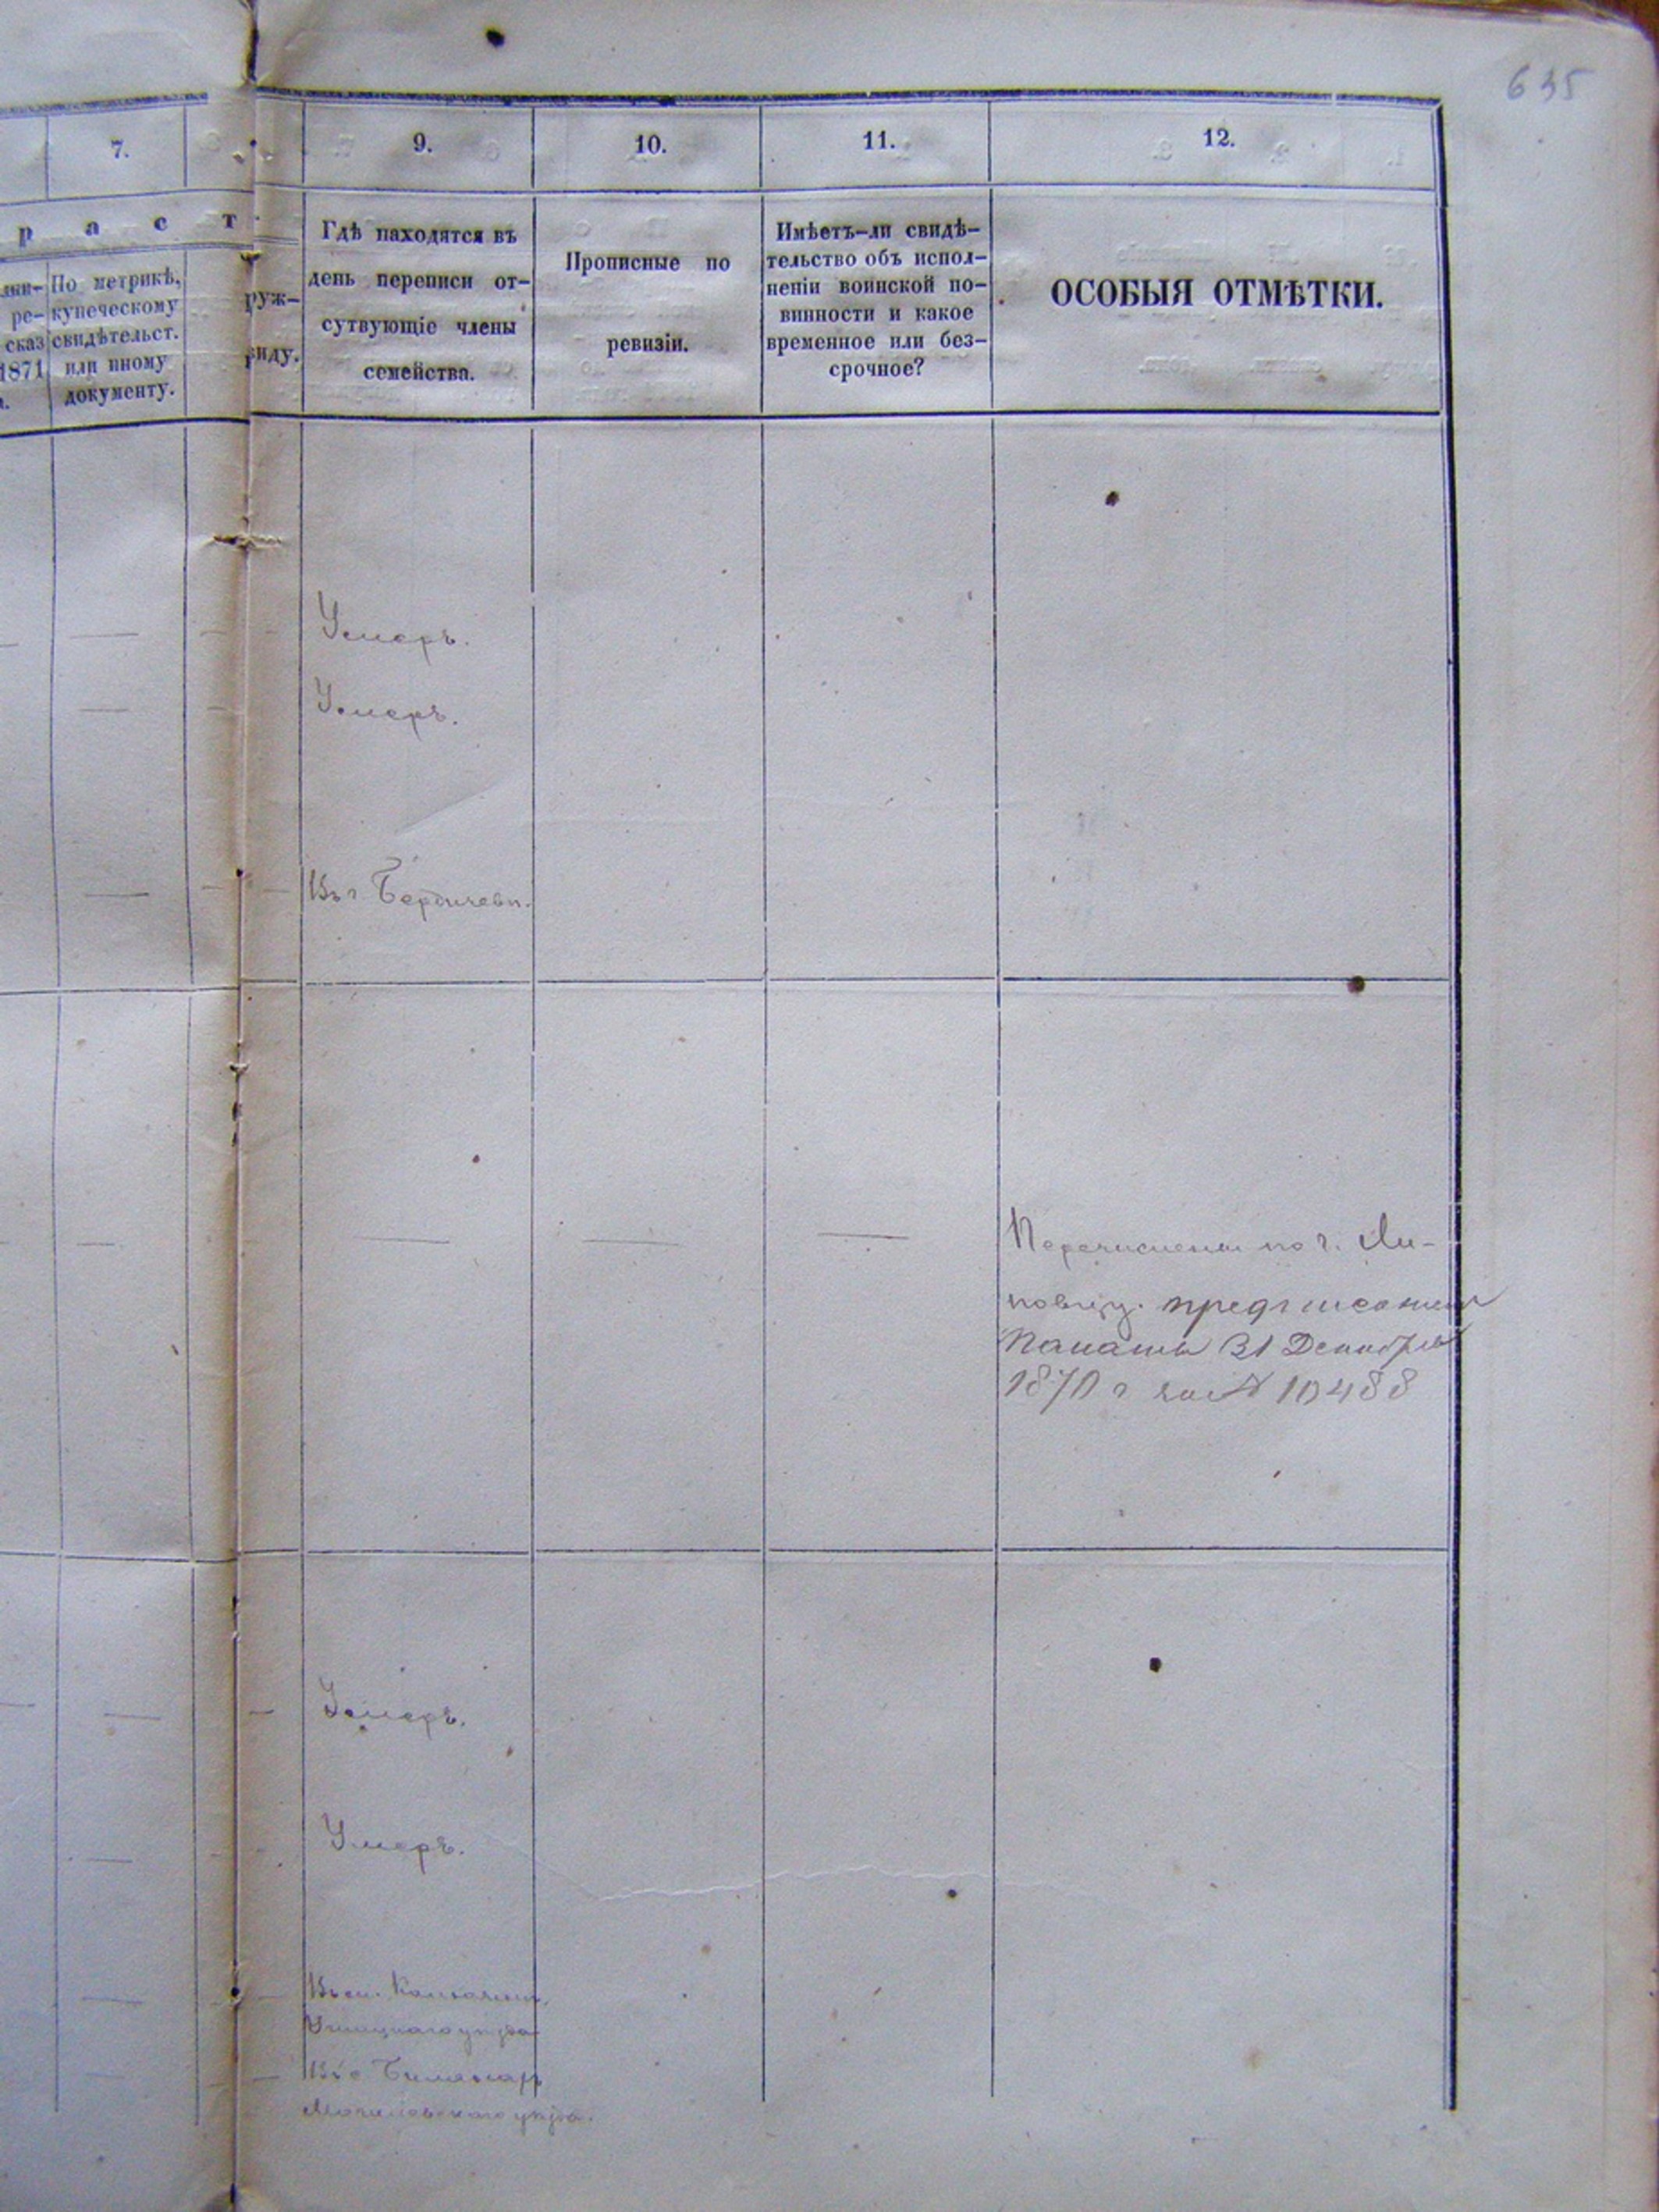 635
7.
9.
10.
11.
12.
р а с т
По метрикѣ,
купеческому
свидѣтельст.
или иному
документу.
ре-
сказ
1871
руж-
виду.
Гдѣ находятся въ
день переписи от-
сутвующіе члены
семейства.
Прописные по
ревизіи.
Имѣетъ-ли свидѣ-
тельство объ испол-
неніи воинской по-
винности и какое
временное или без-
срочное?
ОСОБЫЯ ОТМѢТКИ.
Умеръ.
Умеръ.
Въ г. Бердичевѣ.
Перечислены по г.
Палаты 31 Декабря
1870 г за № 10488
Умеръ.
Умеръ.
Ушицкаго уѣзда
Могилевскаго уѣзда.